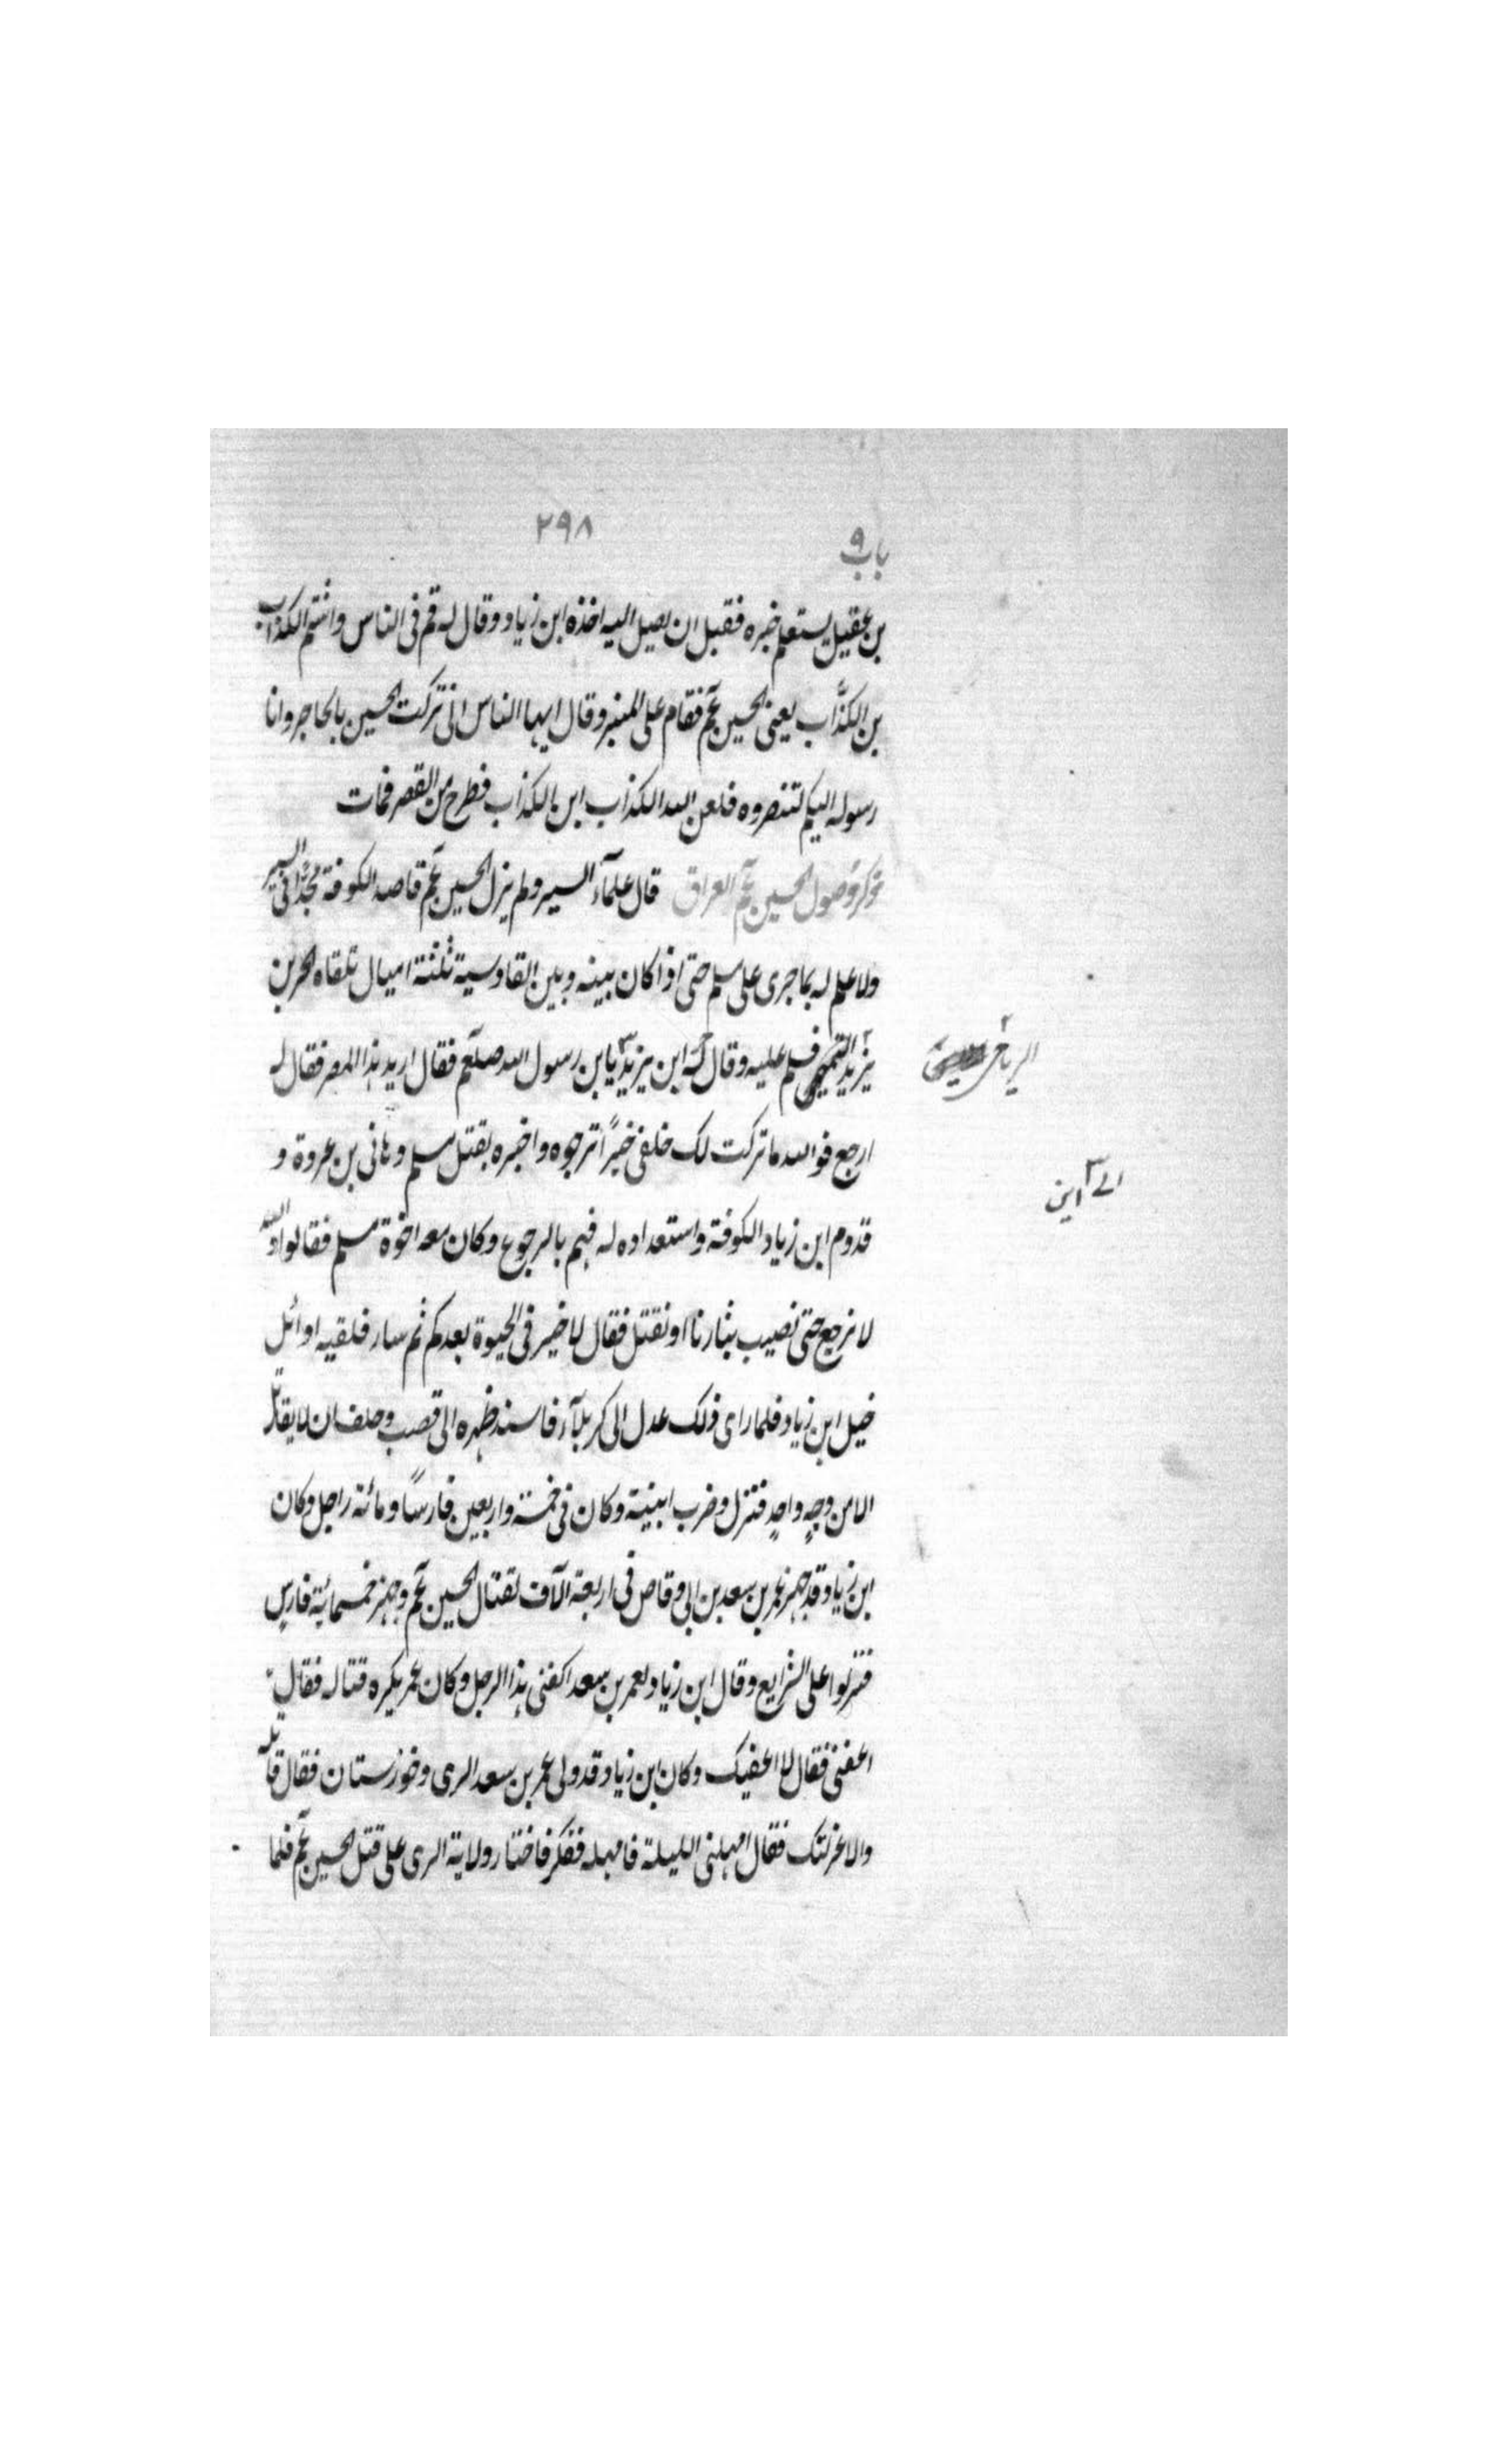 ٢٩٨
باب ٩
بن عقيل يستعلم خبره فقبل ان يصل اليه اخذه ابن زياد وقال له قم فى الناس واشتم الكذاب
بن الكذّاب يعنى الحسين عم فقام على المنبر وقال ايها الناس انى تركت الحسين بالحاجر وانا
رسوله اليكم لتنصروه فلعن الله الكذاب ابن الكذاب فطرح من القصر فمات
ذكر وصول الحسين عم العراق قال علمآء السير ولم يزل الحسين عم قاصد الكوفة مجدًّا فى السير
ولا علم له بما جرى على مسلم حتى اذا كان بينه وبين القادسية ثلثة اميال تلقاه الحر بن
يزيد التميمى فسلم عليه وقال له ابن يزيد يابن رسول الله صلعم فقال اريد هذا المصر فقال له
الرياحى
ارجع فوالله ما تركت لك خلفى خيرًا ترجوه واخبره بقتل مسلم وهانى بن عروة و
الى اين
قدوم ابن زياد الكوفة واستعداده له فهم بالرجوع وكان معه اخوة مسلم فقالوا والله
لا نرجع حتى نصيب بثارنا او نقتل فقال لا خير فى الحيوة بعدكم ثم سار فلقيه اوائل
خيل ابن زياد فلما راى ذلك عدل الى كربلآء فاسند ظهره الى قصب وحلف ان لا يقاتل
الا من وجهٍ واحدٍ فنزل وضرب ابنية وكان فى خمسة واربعين فارسًا ومائة راجل وكان
ابن زياد قد جهز عمر بن سعد بن ابى وقاص فى اربعة الآف لقتال الحسين عم وجهز خمسمائة فارس
فنزلوا على الشرايع وقال ابن زياد لعمر بن سعد اكفنى هذا الرجل وكان عمر يكره قتاله فقال
اعفنى فقال لا اعفيك وكان ابن زياد قد ولى عمر بن سعد الرى وخوزستان فقال قاتله
والا عزلتك فقال امهلنى الليلة فامهله ففكر فاختار ولاية الرى على قتل الحسين عم فلما